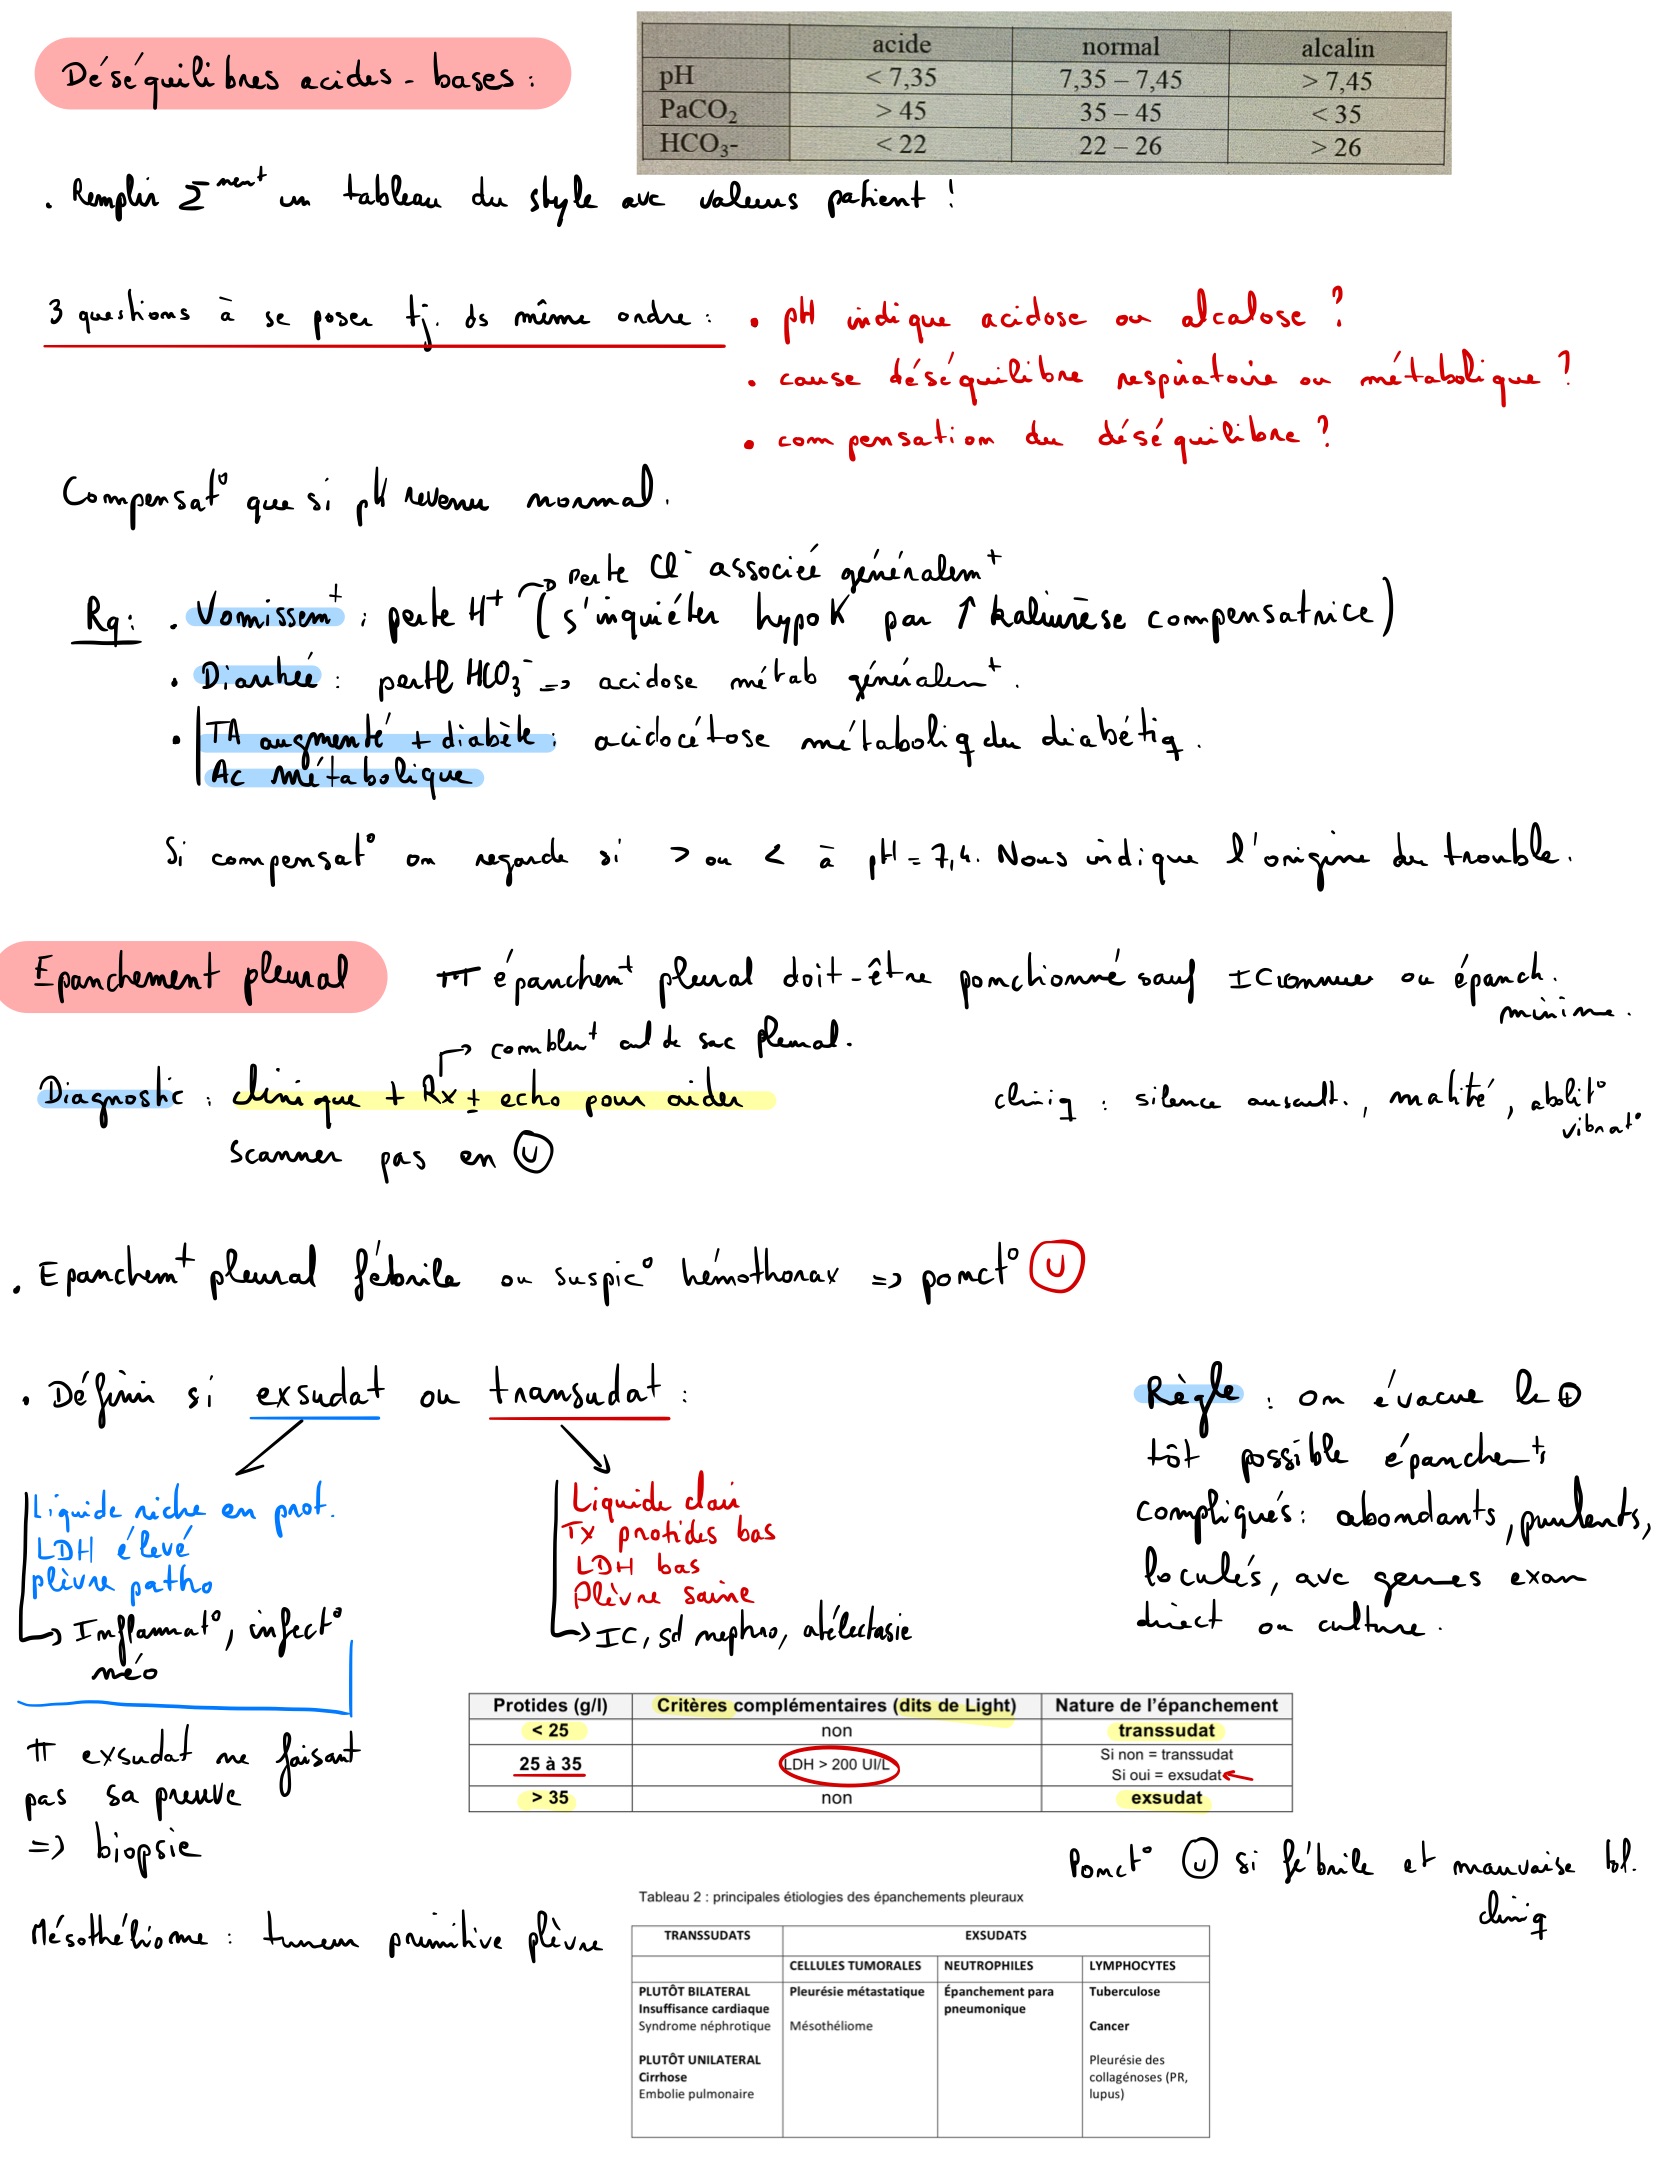 Déséquilibres acides-bases :
acide normal alcalin
pH < 7,35 7,35 – 7,45 > 7,45
PaCO₂ > 45 35 – 45 < 35
HCO₃- < 22 22 – 26 > 26
. Remplir Σment un tableau du style avc valeurs patient !
3 questions à se poser tj. ds même ordre :
• pH indique acidose ou alcalose ?
• cause déséquilibre respiratoire ou métabolique ?
• compensation du déséquilibre ?
Compensat° que si pH revenu normal.
→ Perte Cl⁻ associée généralem^t
Rq : . Vomissem^t : perte H⁺ (s'inquiéter hypoK par ↑ kaliurèse compensatrice)
• Diarrhée : perte HCO₃⁻ => acidose métab généralem^t.
• TA augmenté + diabète : acidocétose métaboliq du diabétiq.
Ac métabolique
Si compensat° on regarde si > ou < à pH = 7,4. Nous indique l'origine du trouble.
Epanchement pleural
TT épanchem^t pleural doit-être ponctionné sauf IC connue ou épanch.
minime.
→ comblem^t cul de sac pleural.
Diagnostic : clinique + Rx ± echo pour aider
cliniq : silence auscult., matité, abolit°
vibrat°
Scanner pas en Ⓤ
. Epanchem^t pleural fébrile ou suspic° hémothorax => ponct° Ⓤ
. Définir si exsudat ou transudat :
Liquide riche en prot.
LDH élevé
plèvre patho
→ Inflammat°, infect°
néo
Liquide clair
Tx protides bas
LDH bas
Plèvre saine
→ IC, sd nephro, atélectasie
Règle : on évacue le ⊕
tôt possible épanchem^ts
compliqués : abondants, purulents,
loculés, avc germes exam
direct ou culture.
TT exsudat ne faisant
pas sa preuve
=> biopsie
Protides (g/l) Critères complémentaires (dits de Light) Nature de l'épanchement
< 25 non transsudat
25 à 35 LDH > 200 UI/L Si non = transsudat
Si oui = exsudat
> 35 non exsudat
Ponct° Ⓤ si fébrile et mauvaise tol.
cliniq
Mésothéliome : tumeur primitive plèvre
Tableau 2 : principales étiologies des épanchements pleuraux
TRANSSUDATS EXSUDATS
CELLULES TUMORALES NEUTROPHILES LYMPHOCYTES
PLUTÔT BILATERAL
Insuffisance cardiaque
Syndrome néphrotique
PLUTÔT UNILATERAL
Cirrhose
Embolie pulmonaire
Pleurésie métastatique
Mésothéliome
Épanchement para
pneumonique
Tuberculose
Cancer
Pleurésie des
collagénoses (PR,
lupus)